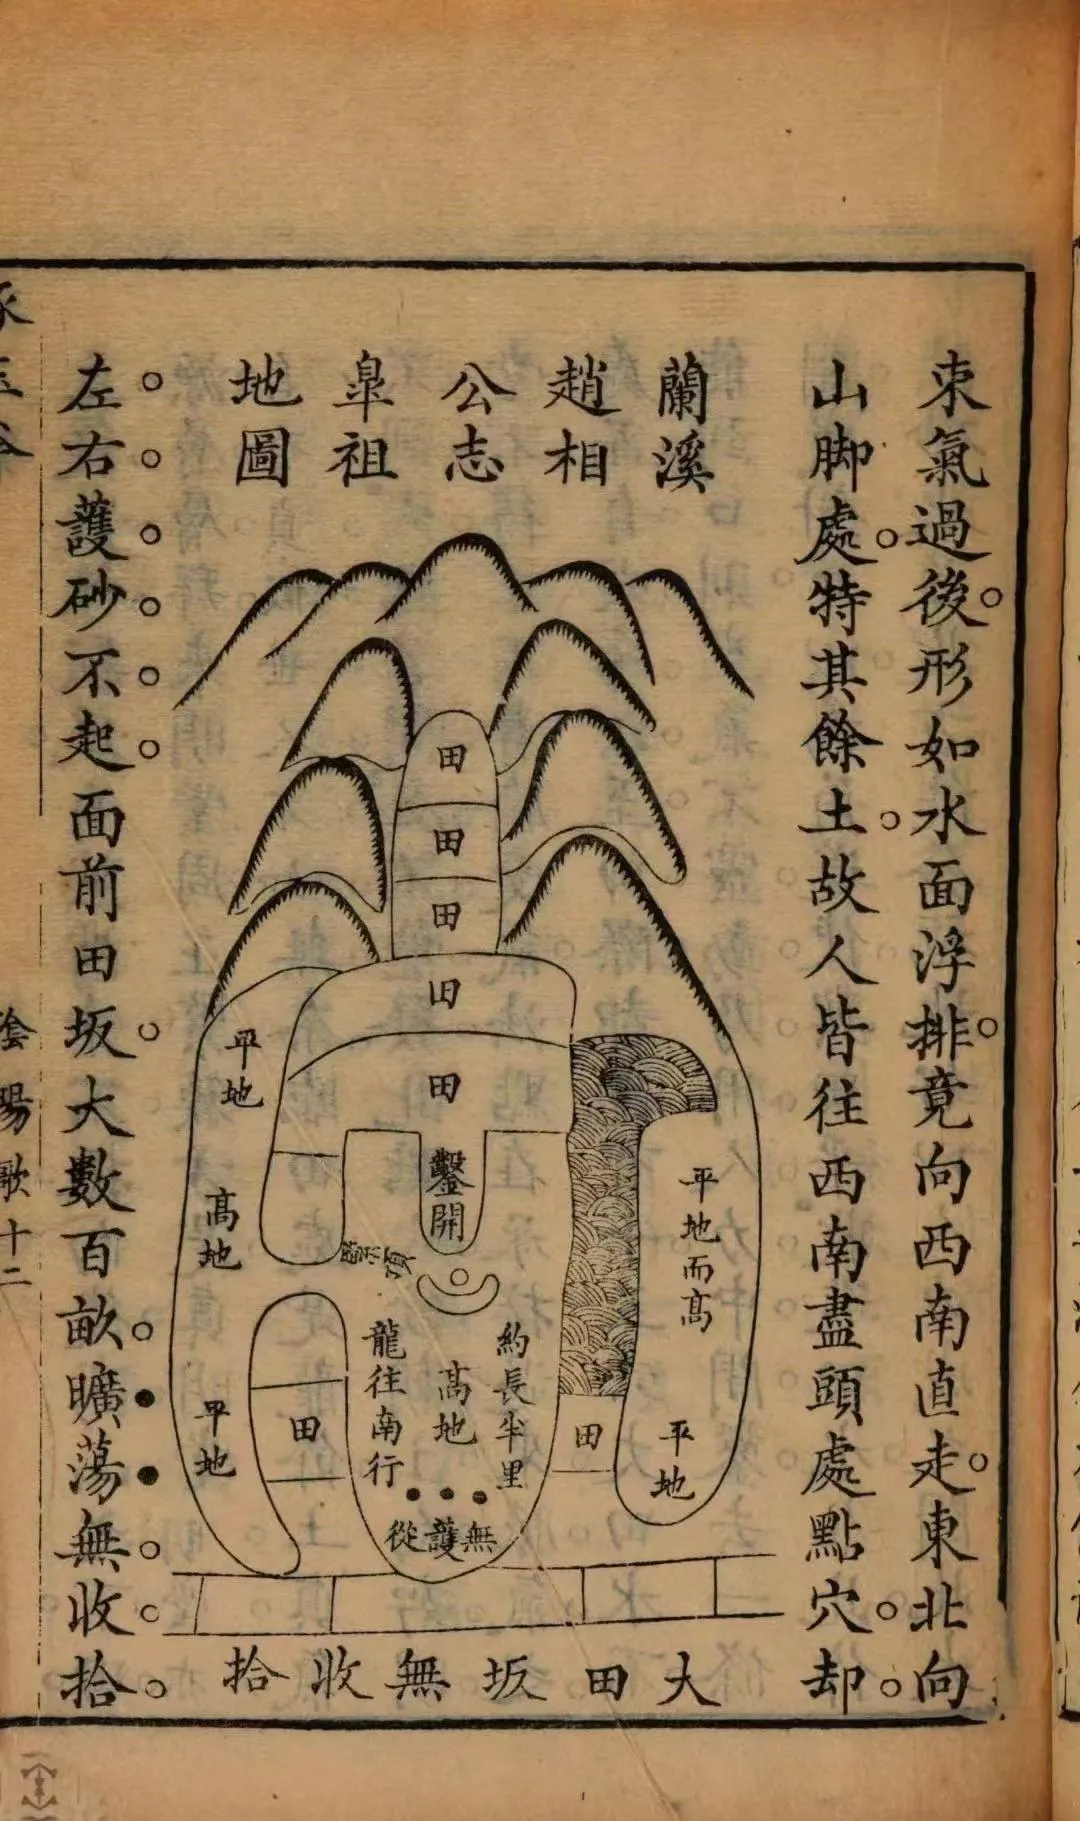 束氣過後形如水面浮排竟向西南直走東北向
山脚處特其餘土故人皆往西南盡頭處點穴却
蘭溪
趙相
公志
皐祖
地圖
田
田
田
田
田
鑿開
平地
高地
平地
田
龍往南行
高地
約長半里
無護從
平地而高
平地
田
大田坂無收拾
左右護砂不起面前田坂大數百畝曠蕩無收拾
陰陽歌十二